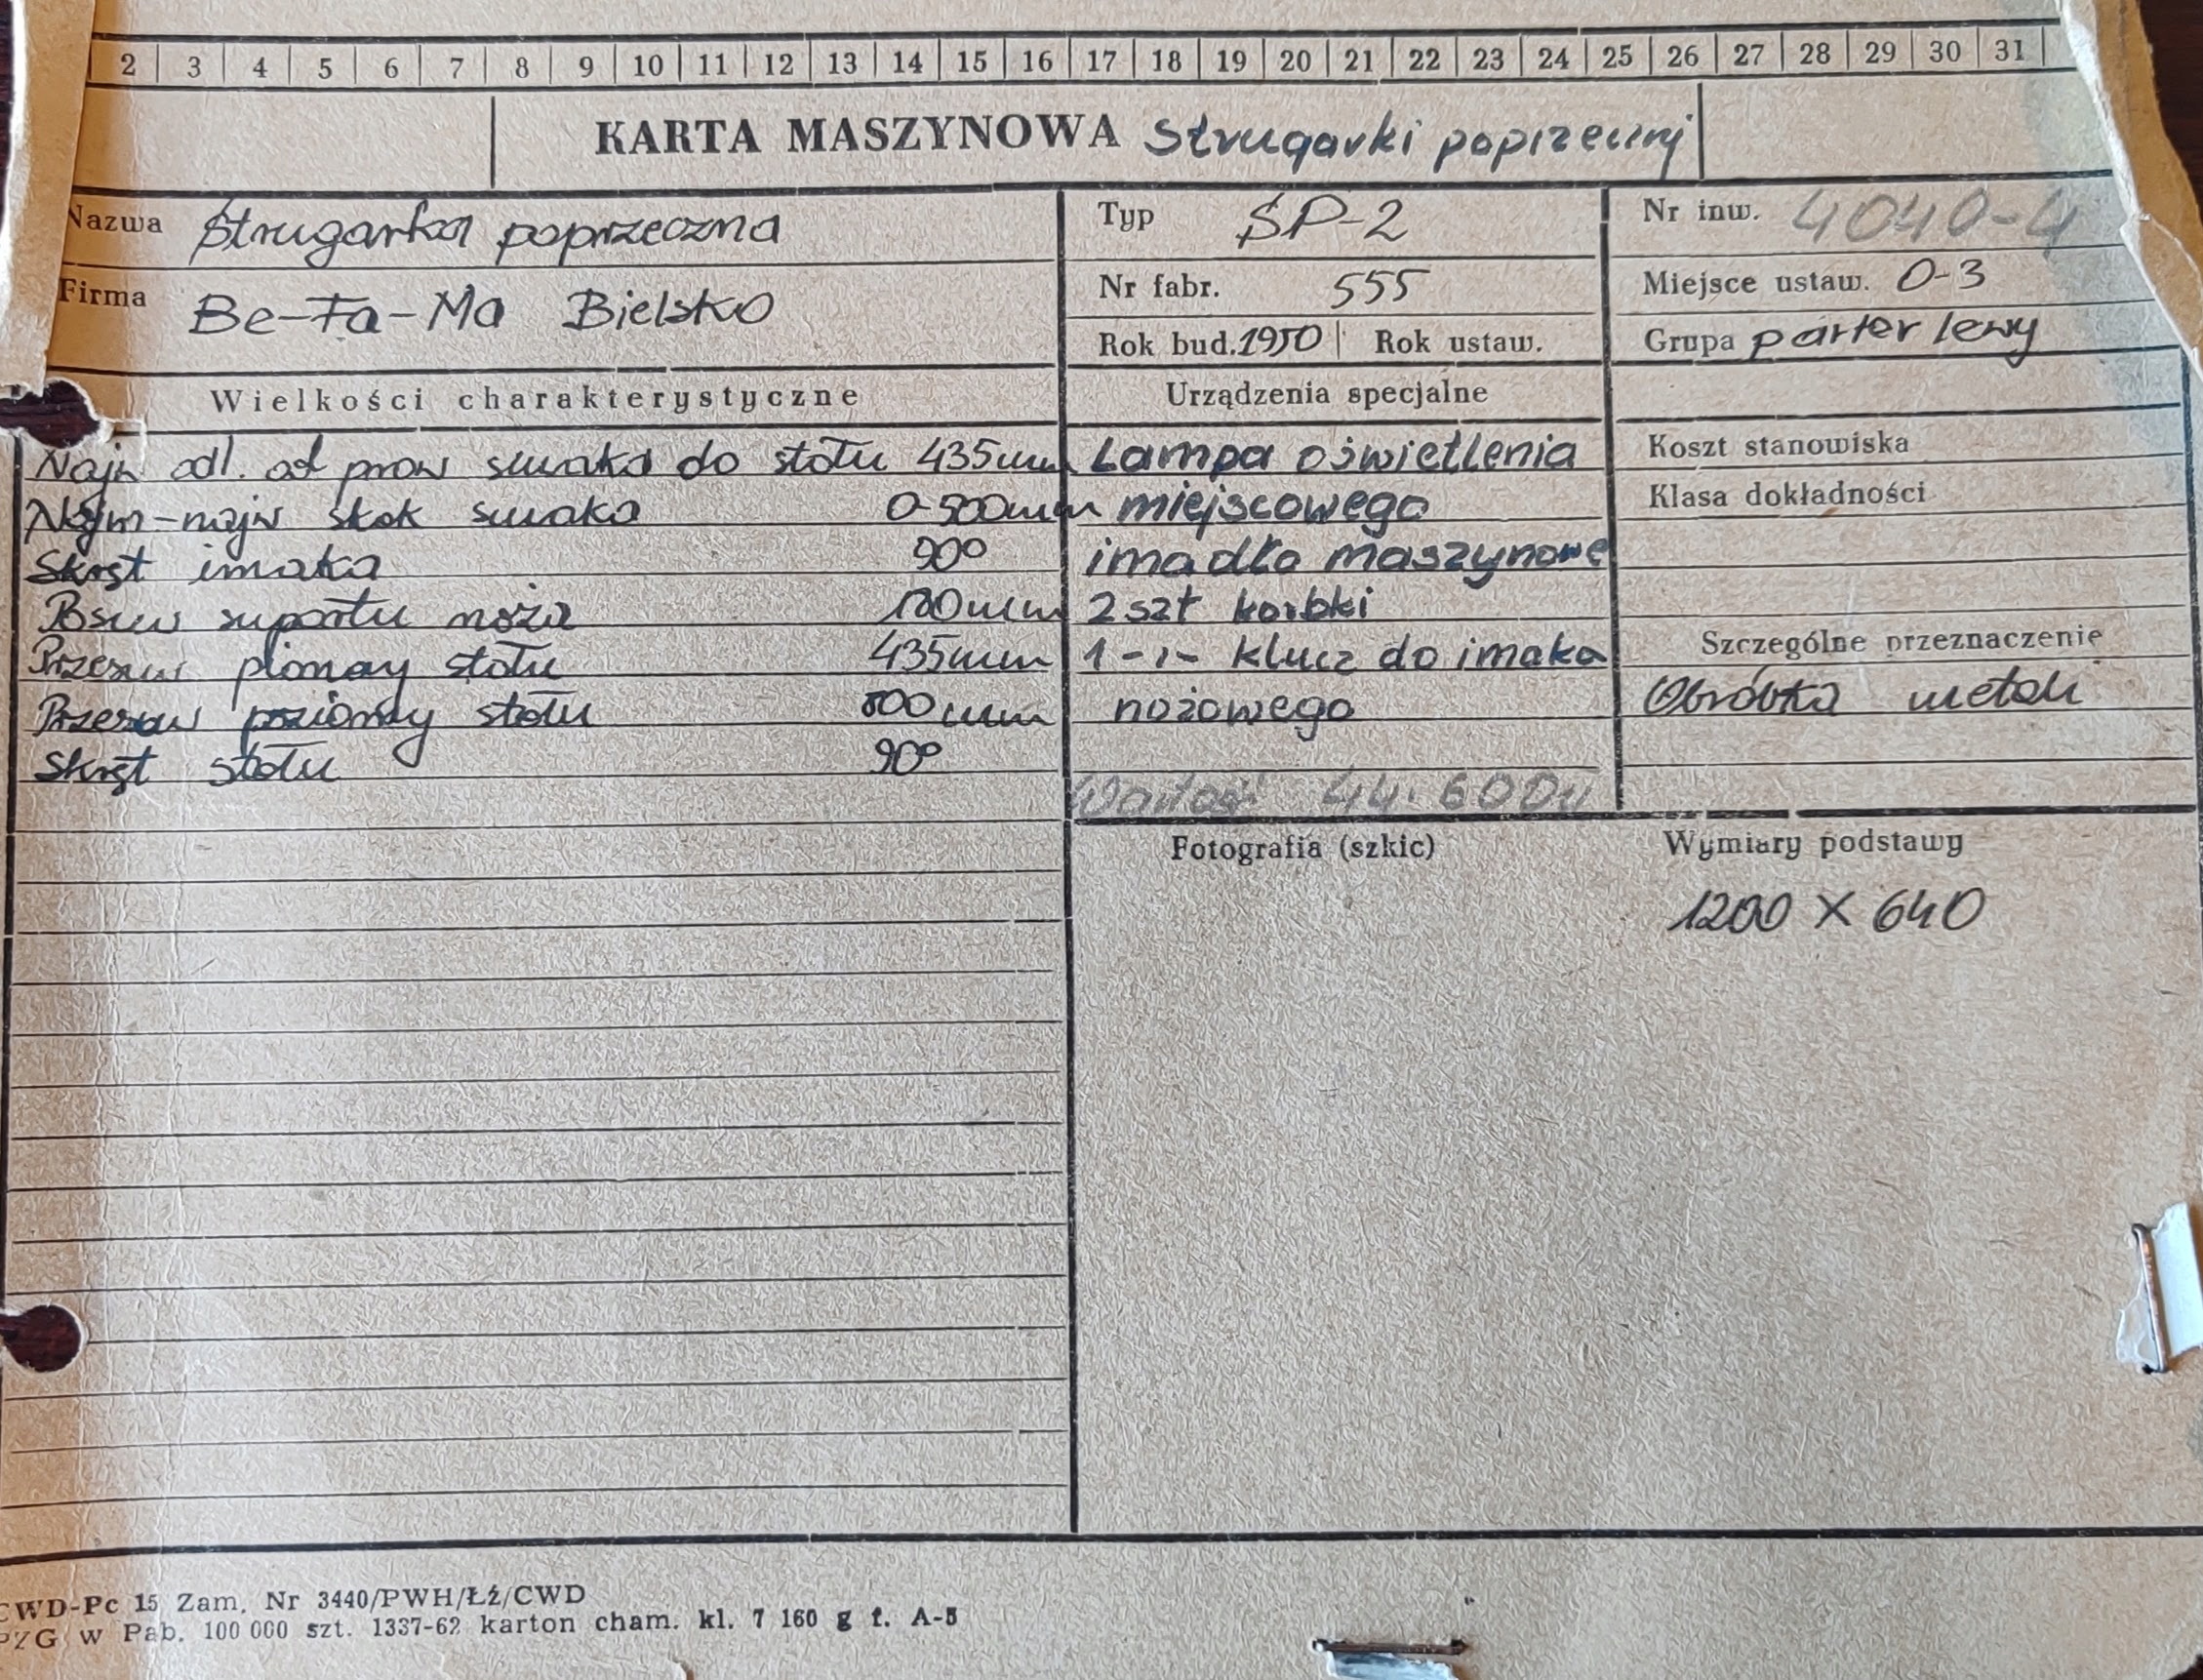 2 3 4 5 6 7 8 9 10 11 12 13 14 15 16 17 18 19 20 21 22 23 24 25 26 27 28 29 30 31
KARTA MASZYNOWA Strugarki poprzecznej
Nazwa Strugarka poprzeczna
Firma Be-Fa-Ma Bielsko
Typ SP-2
Nr fabr. 555
Rok bud. 1950 Rok ustaw.
Nr inw. 4040-4
Miejsce ustaw. 0-3
Grupa parter lewy
Wielkości charakterystyczne
Najw odl. od prow suwaka do stołu 435mm
Najm-najw skok suwaka 0-500mm
Skręt imaka 90°
Posuw suportu noża 120mm
Przesuw pionowy stołu 435mm
Przesuw poziomy stołu 500mm
Skręt stołu 90°
Urządzenia specjalne
Lampa oświetlenia
miejscowego
imadło maszynowe
2szt korbki
1-"- klucz do imaka
nożowego
Wartość 44.600
Koszt stanowiska
Klasa dokładności
Szczególne przeznaczenie
Obróbka metali
Fotografia (szkic)
Wymiary podstawy
1200 X 640
CWD-Pc 15 Zam. Nr 3440/PWH/Łź/CWD
PZG w Pab. 100 000 szt. 1337-62 karton cham. kl. 7 160 g f. A-5